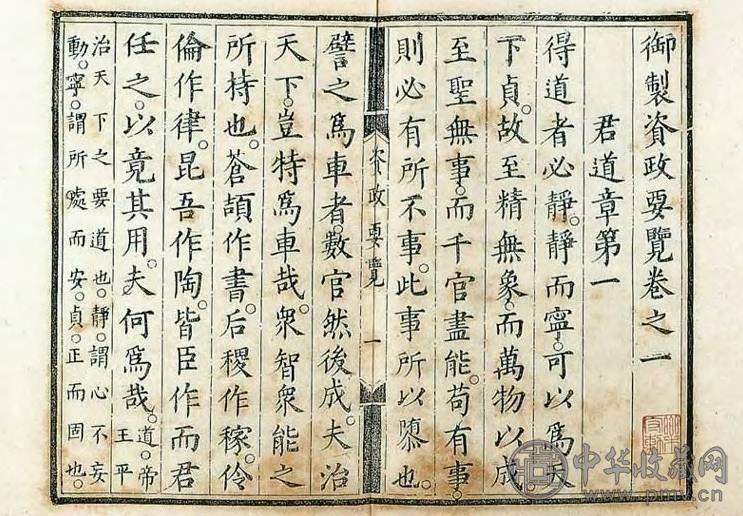 御製資政要覽卷之一
君道章第一
得道者必靜。靜而寧。可以爲天
下貞。故至精無象。而萬物以成。
至聖無事。而千官盡能。苟有事。
則必有所不事。此事所以隳也。
資政要覽 一
譬之爲車者。數官然後成。夫治
天下。豈特爲車哉。衆智衆能之
所持也。蒼頡作書。后稷作稼。伶
倫作律。昆吾作陶。皆臣作而君
任之。以竟其用。夫何爲哉。道。帝
王平
治天下之要道也。靜。謂心不妄
動。寧。謂所處而安。貞。正而固也。
中华收藏网
www.pmv.cn